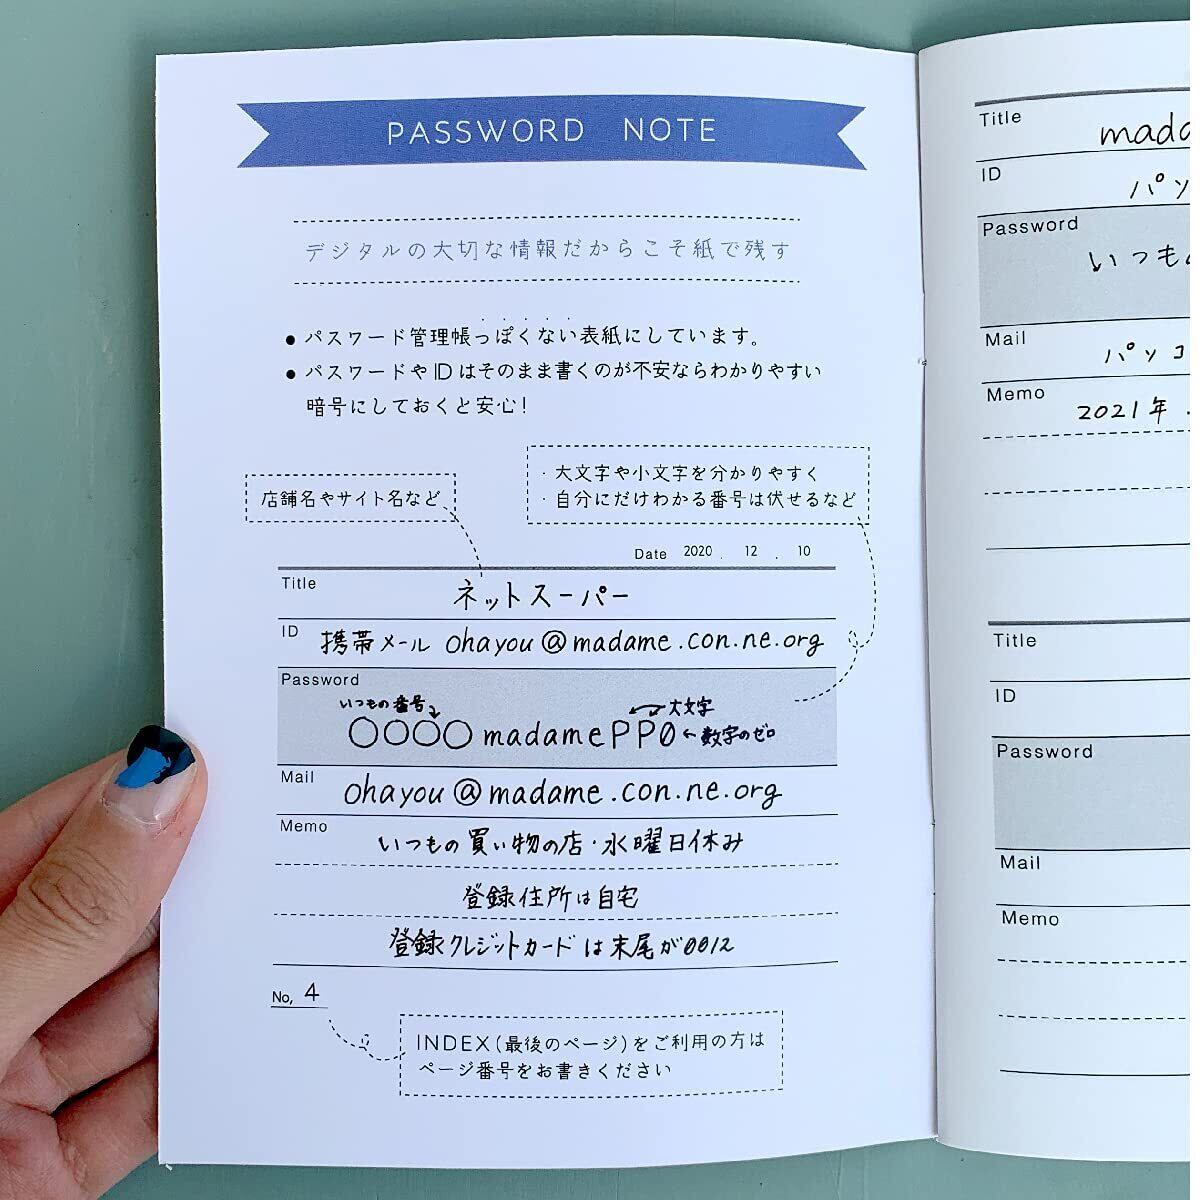 PASSWORD NOTE
デジタルの大切な情報だからこそ紙で残す
● パスワード管理帳っぽくない表紙にしています。
● パスワードやIDはそのまま書くのが不安ならわかりやすい
暗号にしておくと安心!
・大文字や小文字を分かりやすく
・自分にだけわかる番号は伏せるなど
店舗名やサイト名など
Date 2020 . 12 . 10
Title ネットスーパー
ID 携帯メール ohayou@madame.con.ne.org
Password
いつもの番号 大文字
○○○○madamePP0 ←数字のゼロ
Mail ohayou@madame.con.ne.org
Memo いつもの買い物の店・水曜日休み
登録住所は自宅
登録クレジットカードは末尾が0012
No, 4
INDEX(最後のページ)をご利用の方は
ページ番号をお書きください
Title mada
ID パソ
Password
いつも
Mail パソコ
Memo 2021年 .
Title
ID
Password
Mail
Memo